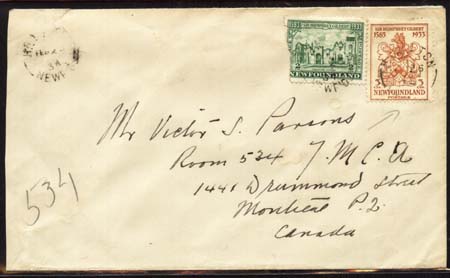 1583 SIR HUMPHREY GILBERT 1933
NEWFOUNDLAND
SIR HUMPHREY GILBERT
1583 1933
NEWFOUNDLAND
POSTAGE
Mr Victor S. Parsons
Room 534 Y.M.C.A
1441 Drummond Street
Montreal P.Q.
Canada
534